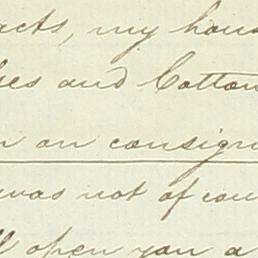 acts, my hous
es and Cotton
on consign
was not of cou
open you a